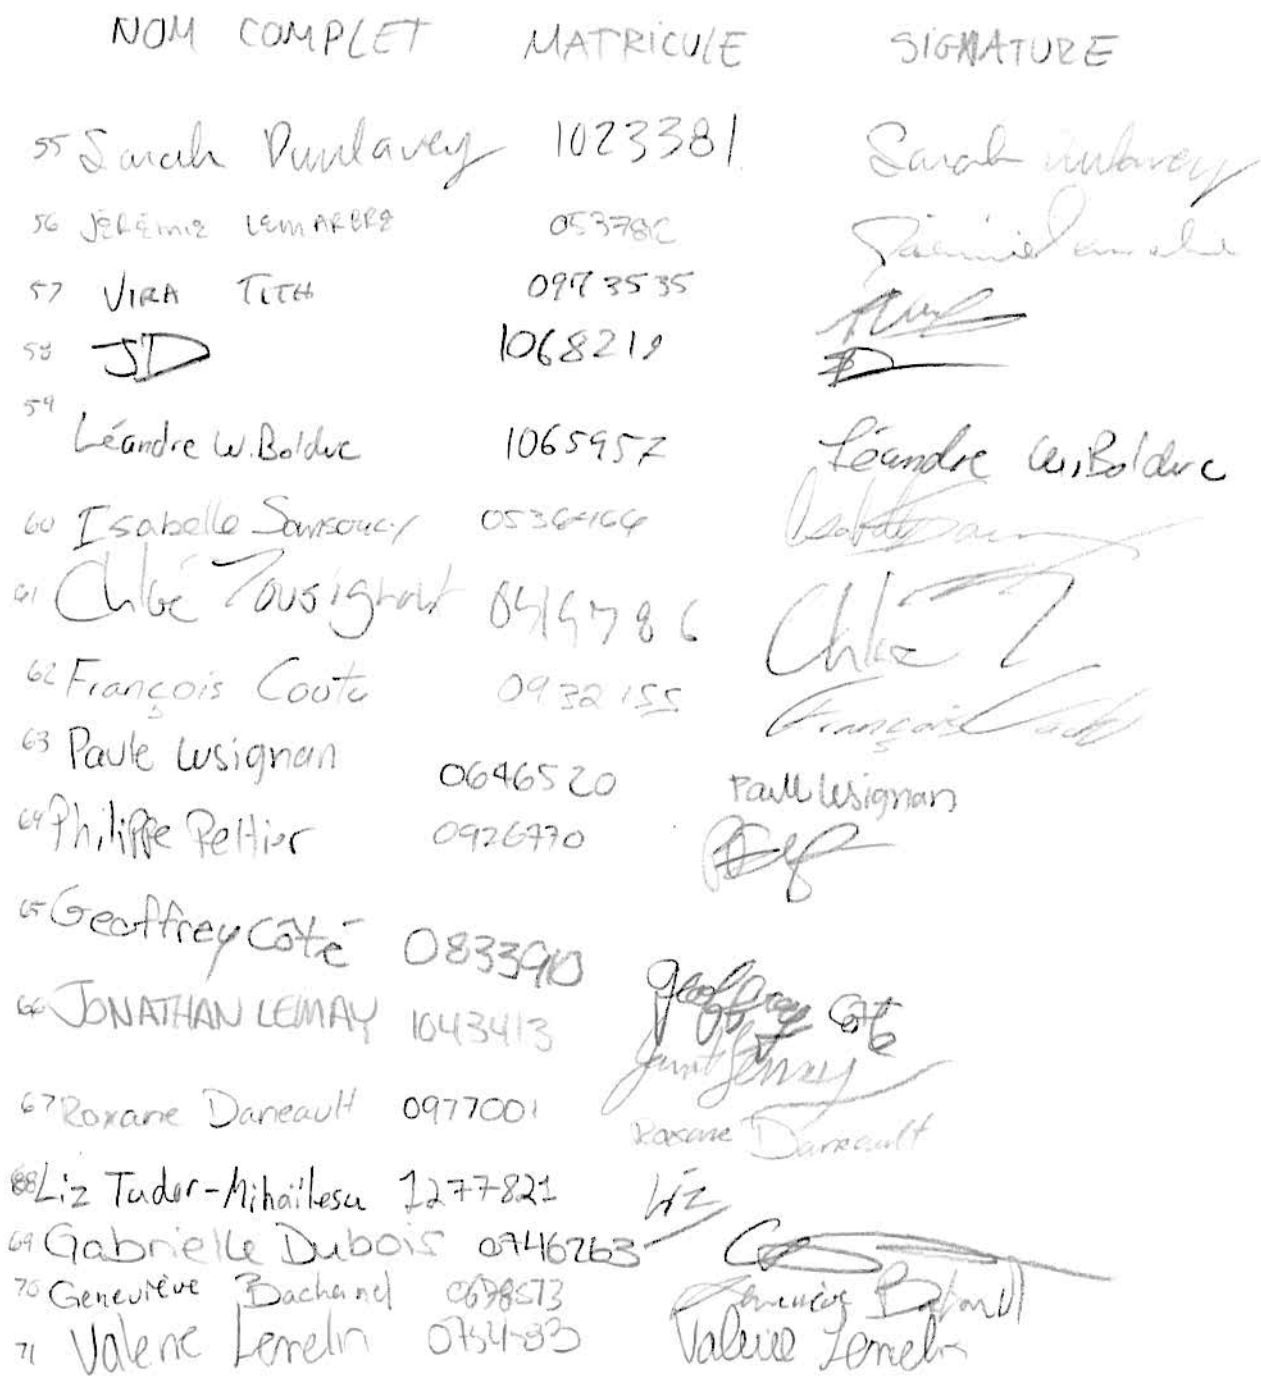 NOM COMPLET MATRICULE SIGNATURE
55 Sarah Dunlavey 1023381 Sarah Dunlavey
56 JÉRÉMIE LEMARBRE
57 VIRA TITH 0973535
58 JD 1068219 JD
59 Léandre W. Bolduc 1065957 Léandre W. Bolduc
60 Isabelle Sansoucy
61 Chloé Tousignant Chloé T
62 François Couto 0932155 François
63 Paule Lusignan 0646520 Paule Lusignan
64 Philippe Peltier 0926770
65 Geoffrey Côté Geoffrey Côté
66 JONATHAN LEMAY 1043413
67 Roxane Daneault 0977001 Roxane Daneault
68 Liz Tudor-Mihaïlescu 1277821 Liz
69 Gabrielle Dubois 0746263
70 Geneviève Bachand Geneviève Bachand
71 Valerie Lemelin Valerie Lemelin